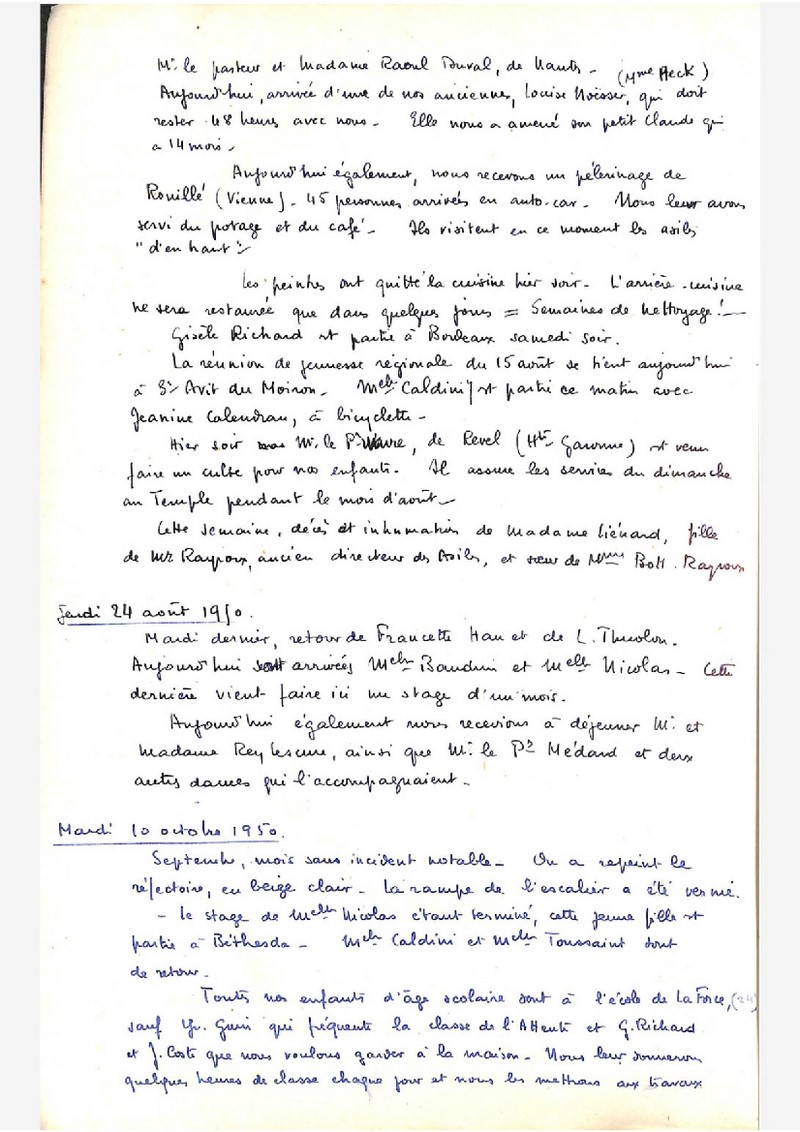 Mr. le pasteur et Madame Raoul Duval, de Nantes - (Mme Heck)
Aujourd'hui, arrivée d'une de nos anciennes, Louise Noësser, qui doit
rester 48 heures avec nous - Elle nous a amené son petit Claude qui
a 14 mois -
Aujourd'hui également, nous recevons un pélerinage de
Rouillé (Vienne) - 45 personnes arrivées en auto-car - Nous leur avons
servi du potage et du café - Ils visitent en ce moment les asiles
"d'en haut" -
Les peintres ont quitté la cuisine hier soir - L'arrière-cuisine
ne sera restaurée que dans quelques jours = Semaines de nettoyage ! -
Gisèle Richard est partie à Bordeaux samedi soir.
La réunion de jeunesse régionale du 15 août se tient aujourd'hui
à St Avit du Moiron - Melle Caldini est partie ce matin avec
Jeanine Calendrau, à bicyclette -
Hier soir Mr. le Pr de Revel (Hte Garonne) est venu
faire un culte pour nos enfants - Il assure les services du dimanche
au Temple pendant le mois d'août -
Cette semaine, décès et inhumation de Madame Liénard, fille
de Mr Rayroux, ancien directeur des Asiles, et sœur de Mme Bott. Rayroux
Jeudi 24 août 1950.
Mardi dernier, retour de Francette Hau et de L. Theulon.
Aujourd'hui sont arrivées Melles Baudin et Melle Nicolas - Cette
dernière vient faire ici un stage d'un mois.
Aujourd'hui également nous recevions à déjeuner M. et
Madame Rey Lescure, ainsi que Mr. le Pr Médard et deux
autres dames qui l'accompagnaient -
Mardi 10 octobre 1950.
Septembre, mois sans incident notable - On a repeint le
réfectoire, en beige clair - La rampe de l'escalier a été vernie.
- Le stage de Melle Nicolas étant terminé, cette jeune fille est
partie à Béthesda - Melle Caldini et Melle Toussaint sont
de retour -
Toutes nos enfants d'âge scolaire sont à l'école de La Force, (24)
sauf Yv. Guin qui fréquente la classe de l'Attente et G. Richard
et J. Coste que nous voulons garder à la maison - Nous leur donnerons
quelques heures de classe chaque jour et nous les mettrons aux travaux